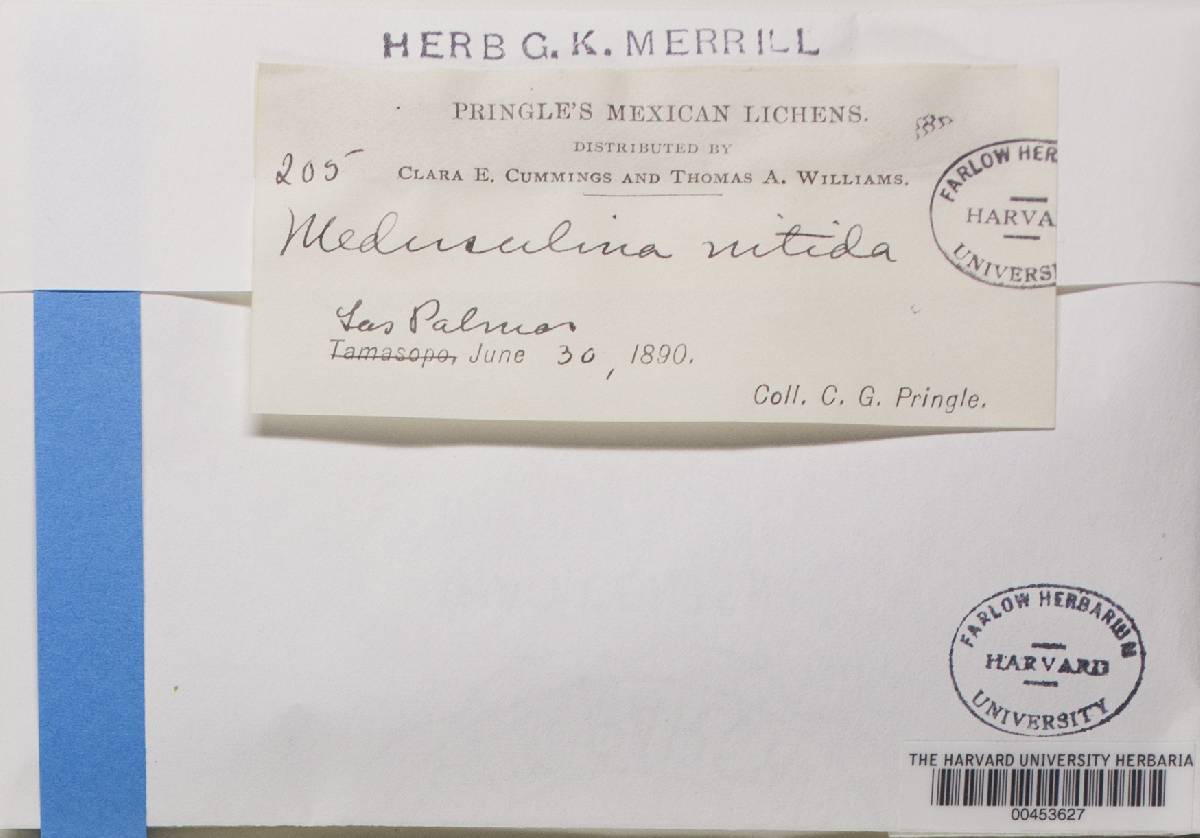 HERB G. K. MERRILL
PRINGLE'S MEXICAN LICHENS.
DISTRIBUTED BY
205 CLARA E. CUMMINGS AND THOMAS A. WILLIAMS.
Medusulina nitida
Las Palmas
Tamasopo, June 30, 1890.
Coll. C. G. Pringle.
FARLOW HER
HARVA
UNIVERSI
FARLOW HERBARIUM
HARVARD
UNIVERSITY
THE HARVARD UNIVERSITY HERBARIA
00453627